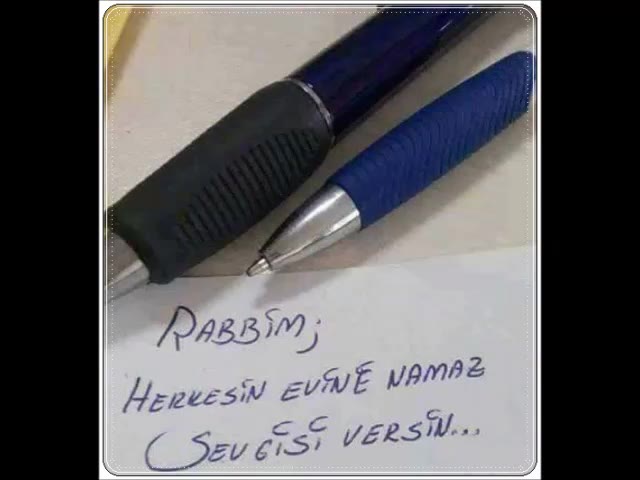 RABBİM;
HERKESİN EVİNE NAMAZ
SEVGİSİ VERSİN...